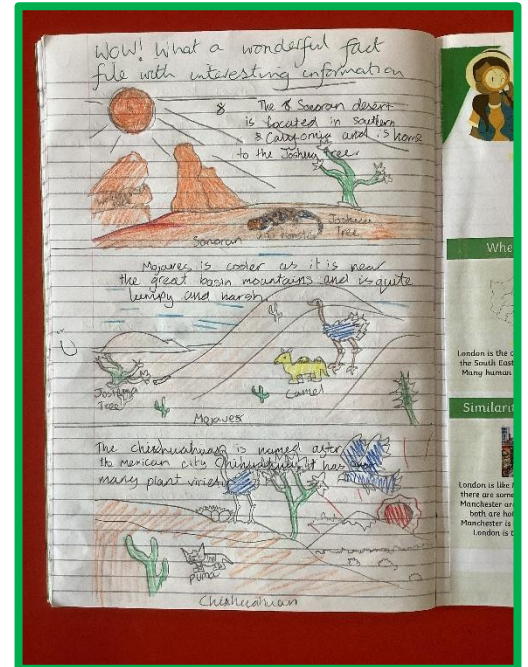 WOW! What a wonderful fact
file with interesting information
8 The 8 Sonoran desert
is located in southern
& Calyonia and is home
to the Joshua Tree.
Joshua
Tree
Sonoran
Mojaves is cooler as it is near
the great basin mountains and is quite
lumpy and harsh.
Joshua
Tree
Camel
Mojaves
The chiehuahuan is named after
the mexican city Chihuahuas it has
many plant
puma
Chiehuahuan
Whe
London is the c
the South East
Many human
Similari
London is like
there are some
Manchester are
both are ho
Manchester is
London is t